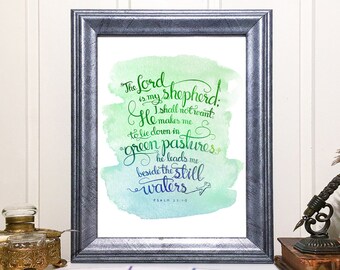 The Lord
is my shepherd;
I shall not want.
He makes me
to lie down in
green pastures,
he leads me
beside the still
waters